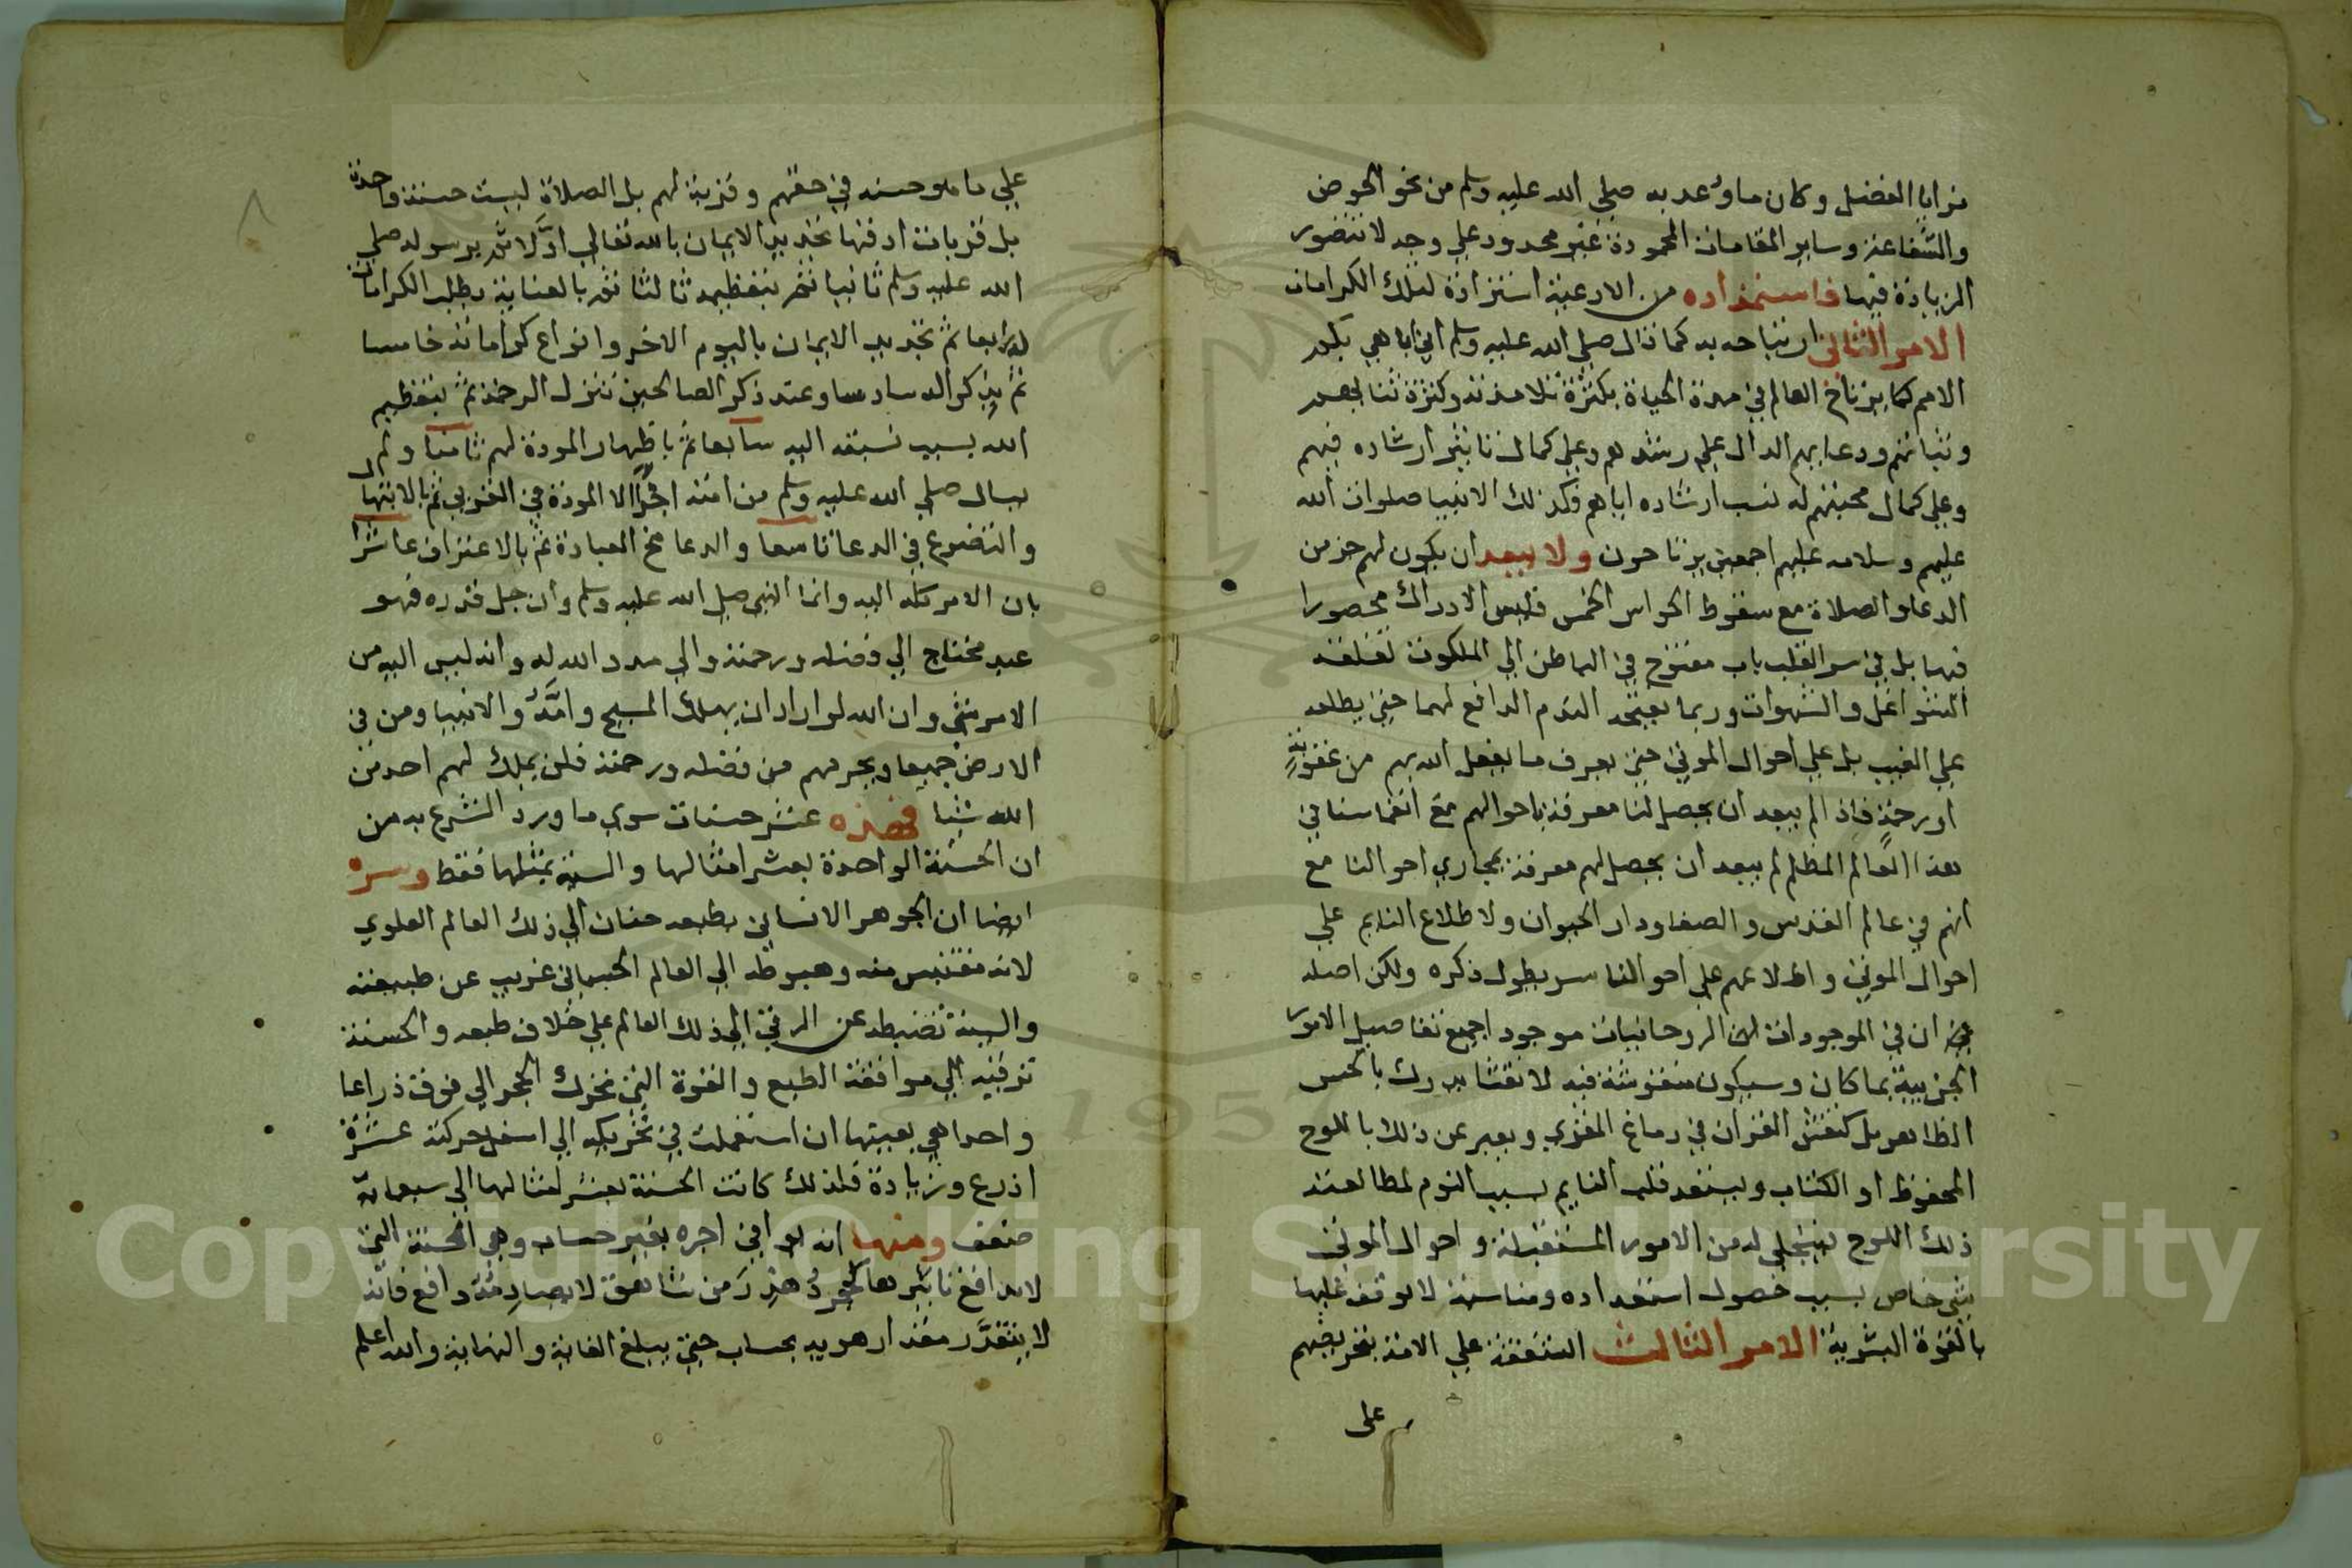 مزايا الفضل وكان ما وعد به صلي الله عليه وسلم من نحو الحوض
والشفاعة وساير المقامات المحمودة غير محدود علي وجه لا تتصور
الزيادة فيها فاستمداده من الادعية استزادة لتلك الكرامات
الامر الثاني ارتياحه به كما قال صلي الله عليه وسلم اني اباهي بكم
الامم كما يرتاح العالم في مدة الحياة بكثرة تلامذته وكثرة ثنايهم
وثباتهم ودعايهم الدال علي رشدهم وعلي كمال تاثير ارشاده فيهم
وعلي كمال محبتهم له لسبب ارشاده اياهم فكذلك الانبيا صلوات الله
عليهم وسلامه عليهم اجمعين يرتاحون ولا يبعد ان يكون لهم حز من
الدعا والصلاة مع سقوط الحواس الخمس فليس الادراك محصورا
فيها بل في سر القلب باب مفتوح في الباطن الي الملكوت تغلقه
الشواغل والشهوات وربما يفتحه النوم الدافع لهما حتي يطلعه
علي الغيب بل علي احوال الموتي حتي يعرف ما يفعل الله بهم من عقوبة
او رحمة فاذا لم يبعد ان يحصل لنا معرفة باحوالهم مع انغماسنا في
هذا العالم المظلم لم يبعد ان يحصل لهم معرفة بمجاري احوالنا مع
انهم في عالم القدس والصفا ودار الحيوان ولاطلاع النايم علي
احوال الموتي واطلاعهم علي احوالنا سر يطول ذكره ولكن اصله
ان في الموجودات الروحانيات موجودا جميع تفاصيل الامور
الجزيية بما كان وسيكون منقوشة فيه لا نقشا يدرك بالحس
الظاهر بل كنقش القران في دماغ المقري ويعبر عن ذلك باللوح
المحفوظ او الكتاب ويستعد قلب النايم بسبب النوم لمطالعته
ذلك اللوح فيتجلي له من الامور المستقبلة واحوال الموتي
شي خاص بسبب حصول استعداده ومناسبة لا يوقف عليها
بالقوة البشرية الامر الثالث الشفقة علي الامة بتحريضهم
على
علي ما هو حسنه في حقهم وقربة لهم بل الصلاة ليست حسنة واحدة
بل قربات اد فيها تجديد الايمان بالله تعالي اولا ثم برسوله صلي
الله عليه وسلم ثانيا ثم بتعظيمه ثالثا ثم بالعناية بطلب الكرامات
له رابعا ثم تجديد الايمان باليوم الاخر وانواع كراماته خامسا
ثم بذكر اله سادسا وعند ذكر الصالحين تنزل الرحمة ثم بتعظيم
الله بسبب نسبته اليه سابعا ثم باظهار المودة لهم ثامنا ولم
يسال صلي الله عليه وسلم من امته اجرا الا المودة في القربي ثم بالابتهال
والتضرع في الدعا تاسعا والدعا مخ العبادة ثم بالاعتراف عاشرا
بان الامر كله اليه وانما النبي صلي الله عليه وسلم وان جل قدره فهو
عبد محتاج الي فضله ورحمته والي مدد الله له وانه ليس اليه من
الامر شي وان الله لو اراد ان يهلك المسيح وامه والانبيا ومن في
الارض جميعا ويحرمهم من فضله ورحمته فلن يملك لهم احد من
الله شيا فهذه عشر حسنات سوي ما ورد الشرع به من
ان الحسنة الواحدة بعشر امثالها والسيئة بمثلها فقط وسره
ايضا ان الجوهر الانساني بطبعه حنان الي ذلك العالم العلوي
لانه مقتبس منه وهبوطه الي العالم الجسماني غريب عن طبيعته
والسيئة تضبطه عن الرقي الي ذلك العالم علي خلاف طبعه والحسنة
ترقيه الي موافقة الطبع والقوة التي تحرك الحجر الي فوق ذراعا
واحدا هي بعينها ان استعملت في تحريكه الي اسفل حركته عشرة
اذرع وزيادة فلذلك كانت الحسنة بعشر امثالها الي سبعماية
ضعف ومنها انه يوافي اجره بغير حساب وهي الحسنة التي
لا يدافع تاثيرها كحجر هدر من شاهق لا يصادمه دافع فانه
لا يتقدر مقدار هويه بحساب حتي يبلغ الغاية والنهاية والله اعلم
٨
Copyright © King Saud University
1957